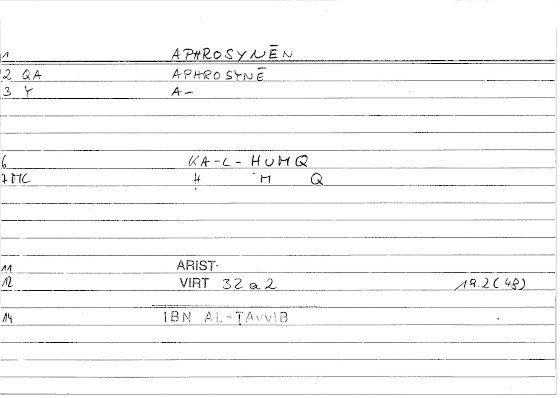 1 APHROSYNĒN
2 QA APHROSYNĒ
3 Y A-
6 KA-L-HUMQ
7 MC Ḥ M Q
11 ARIST.
12 VIRT 32a2 19.2(48)
14 IBN AL-ṬAYYIB